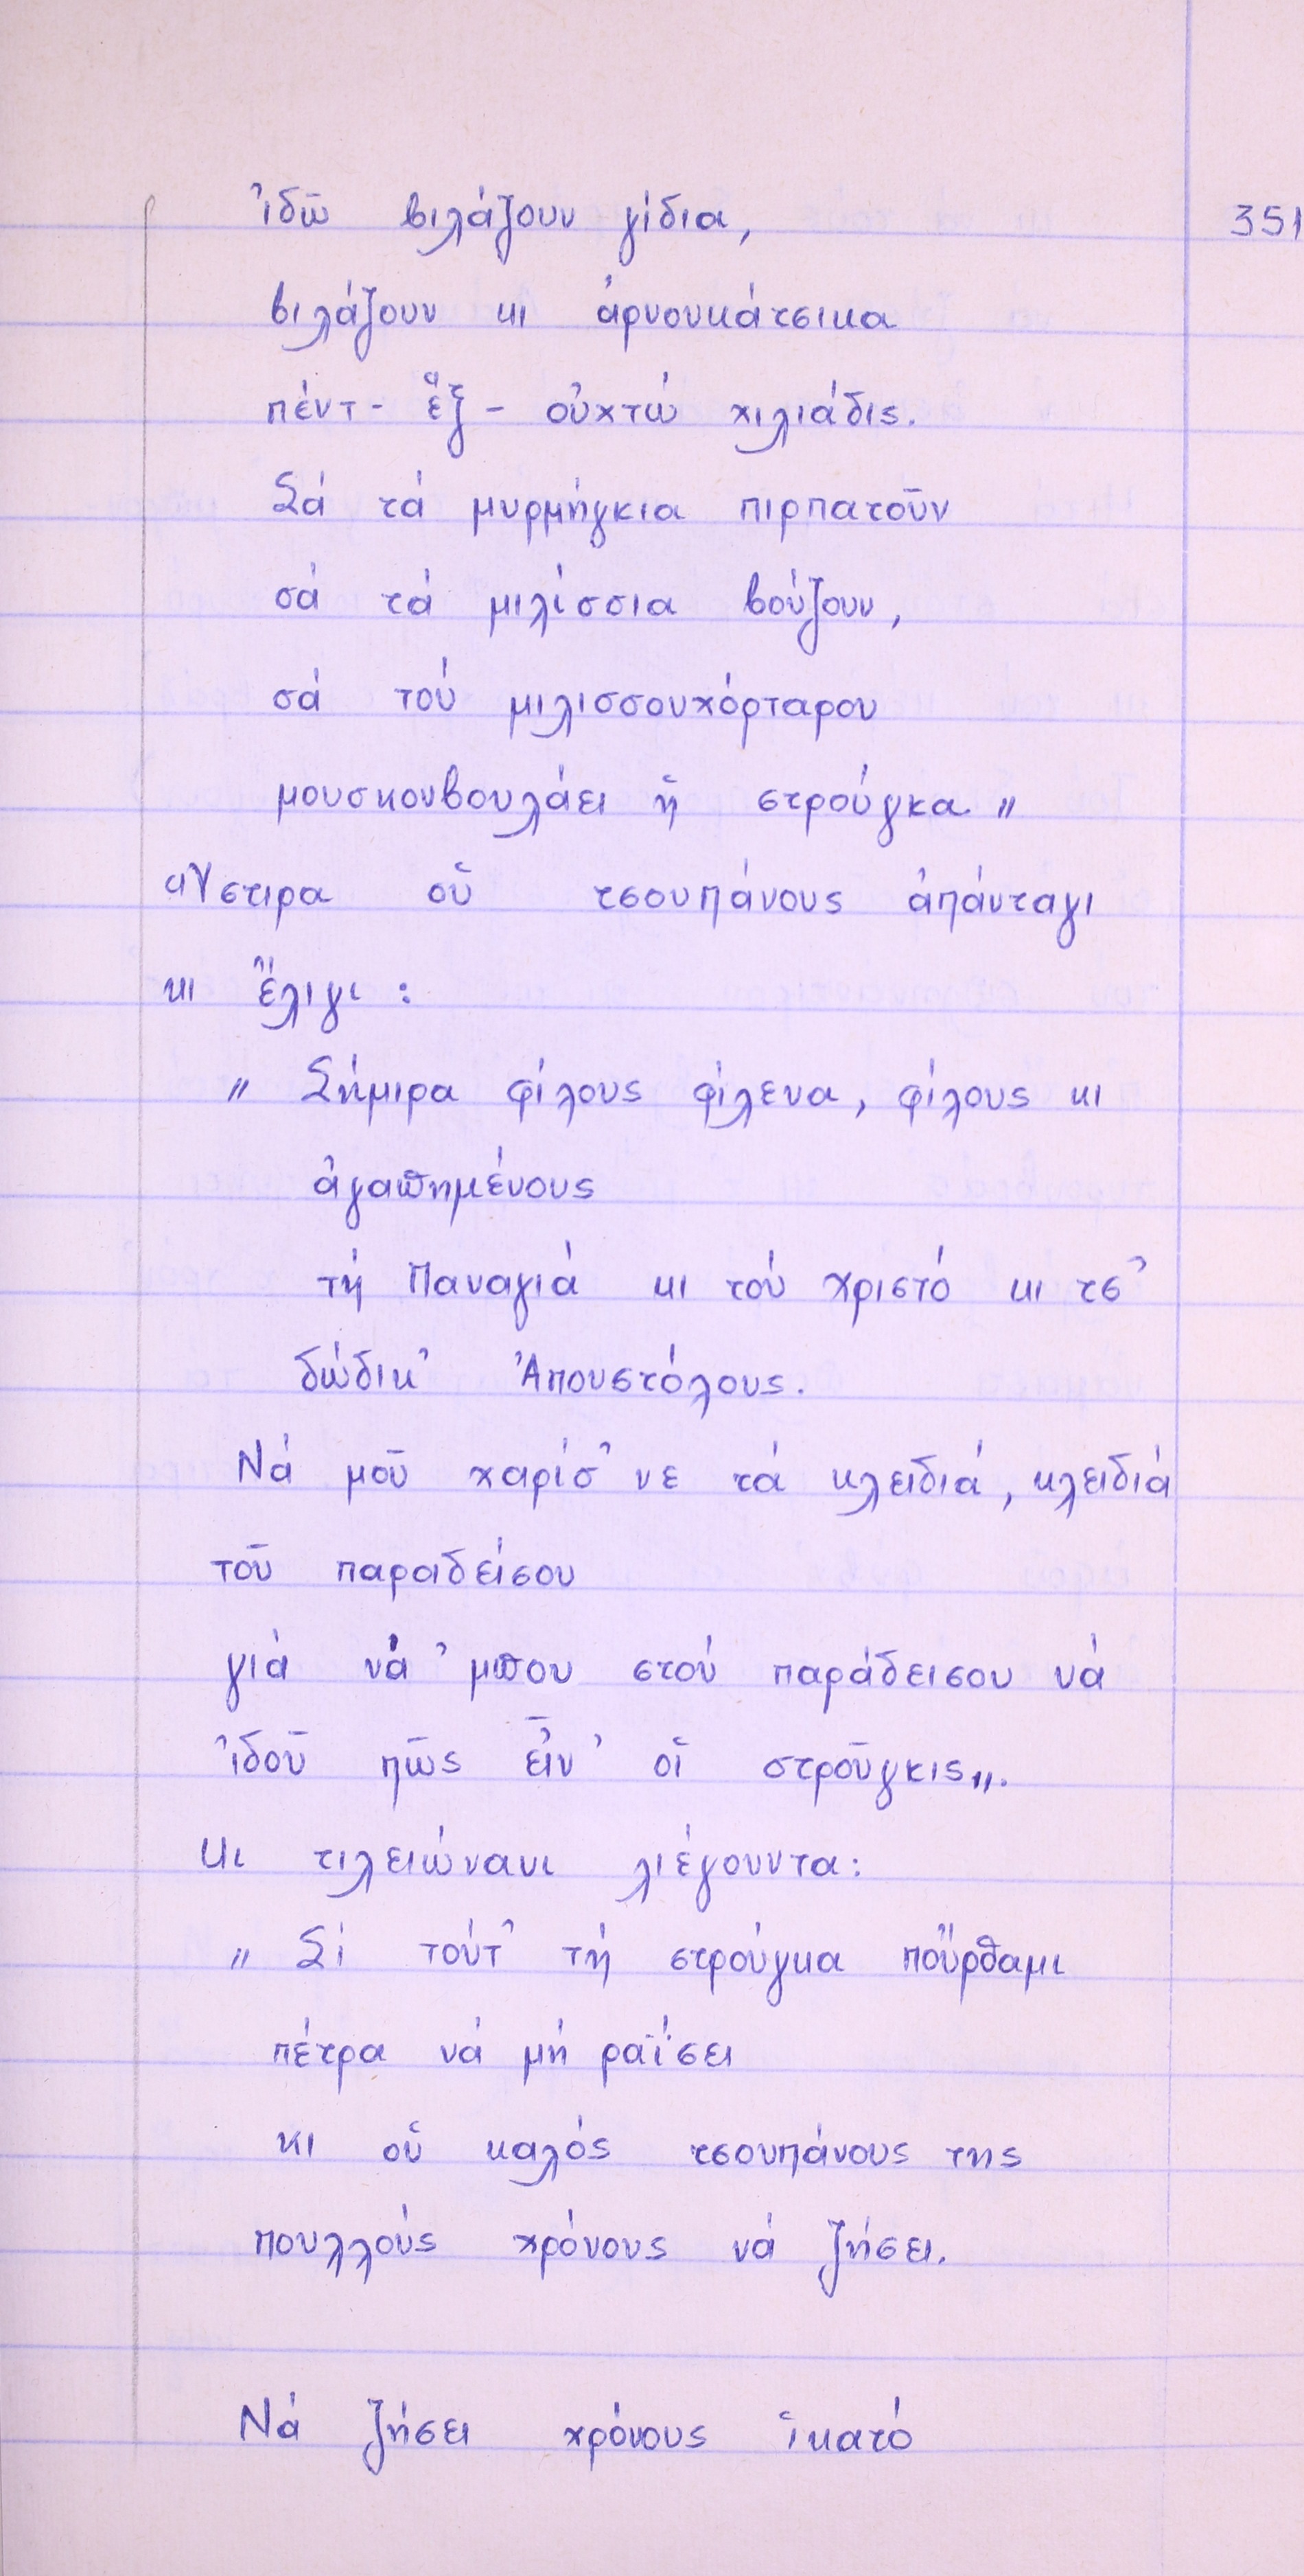 ἰδῶ βιλάζουν γίδια,
351
βιλάζουν κι ἀρνουκάτσικα
πέντ - ἕξ - οὐχτώ χιλιάδις.
Σά τά μυρμήγκια πιρπατοῦν
σά τά μιλίσσια βούζουν,
σά τού μιλισσουχόρταρου
μουσκουβουλάει ἡ στρούγκα"
Ὕστιρα οὑ τσουπάνους ἀπάνταγι
κι ἔλιγι :
" Σήμιρα φίλους φίλευα, φίλους κι
ἀγαπημένους
τή Παναγιά κι τού Χριστό κι τσ'
δώδικ' Ἀπουστόλους.
Νά μοῦ χαρίσ' νε τά κλειδιά, κλειδιά
τοῦ παραδείσου
γιά νά 'μπου στού παράδεισου νά
ἰδοῦ πῶς εἶν' οἱ στροῦγκις".
Κι τιλειώνανι λιέγουντα:
" Σί τούτ' τή στρούγκα ποὔρθαμι
πέτρα νά μή ραΐσει
κι οὑ καλός τσουπάνους της
πουλλούς χρόνους νά ζήσει.
Νά ζήσει χρόνους ἱκατό